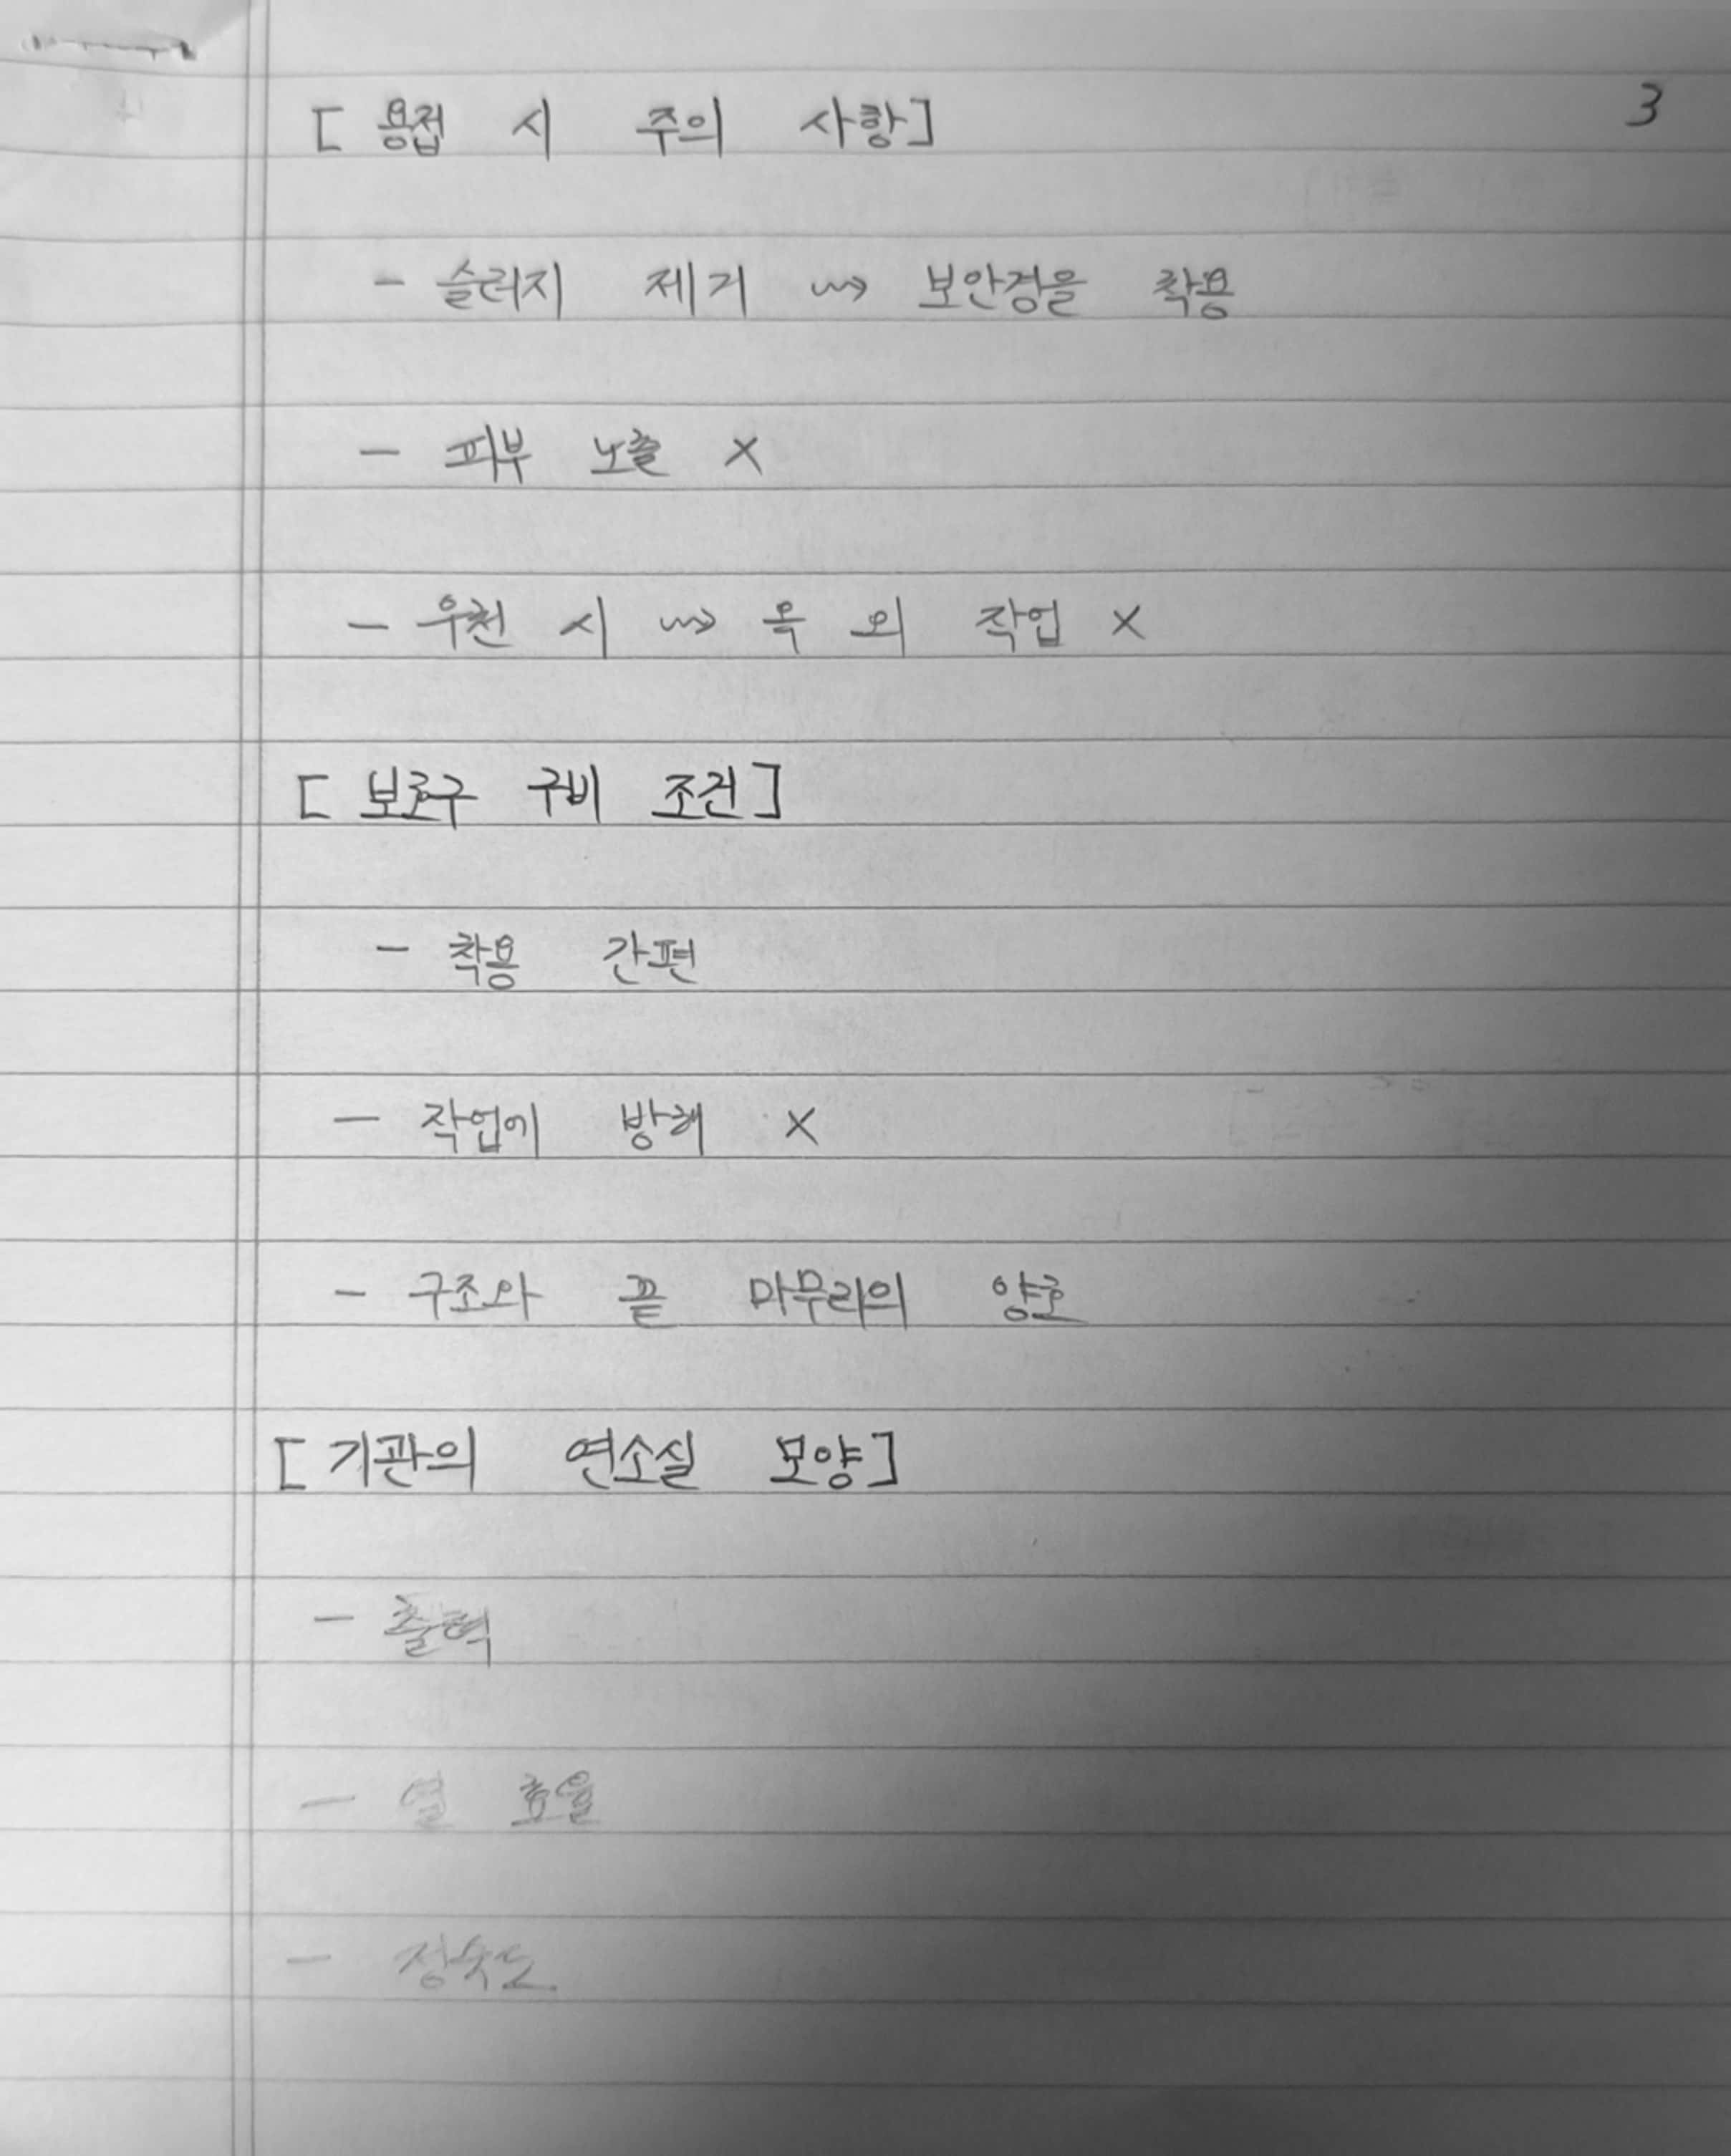 3
[ 용접 시 주의 사항 ]
- 슬러지 제거 ⇝ 보안경을 착용
- 피부 노출 ×
- 우천 시 ⇝ 옥 외 작업 ×
[ 보호구 구비 조건 ]
- 착용 간편
- 작업에 방해 ×
- 구조와 끝 마무리의 양호
[ 기관의 연소실 모양 ]
- 출력
- 열 효율
- 정숙도